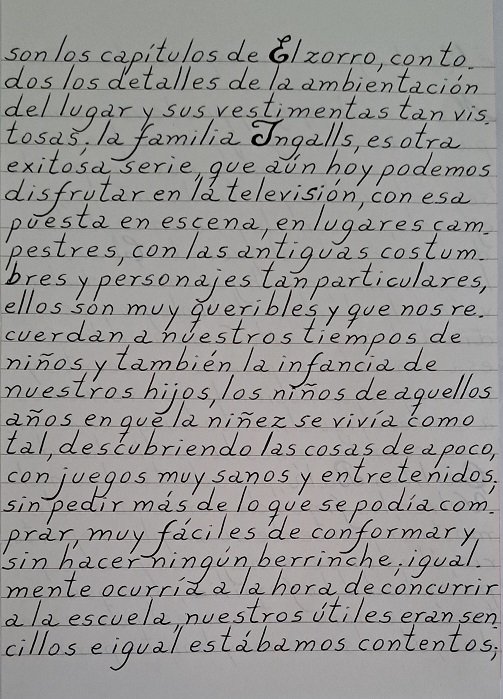 son los capítulos de El zorro, con to-
dos los detalles de la ambientación
del lugar y sus vestimentas tan vis-
tosas; la familia Ingalls, es otra
exitosa serie, que aún hoy podemos
disfrutar en la televisión, con esa
puesta en escena, en lugares cam-
pestres, con las antiguas costum-
bres y personajes tan particulares,
ellos són muy queribles y que nos re-
cuerdan a nuestros tiempos de
niños y también la infancia de
nuestros hijos, los niños de aquellos
años en que la niñez se vivía como
tal, descubriendo las cosas de a poco,
con juegos muy sanos y entretenidos,
sin pedir más de lo que se podía com-
prar, muy fáciles de conformar y,
sin hacer ningún berrinche; igual-
mente ocurría a la hora de concurrir
a la escuela, nuestros útiles eran sen-
cillos e igual estábamos contentos;